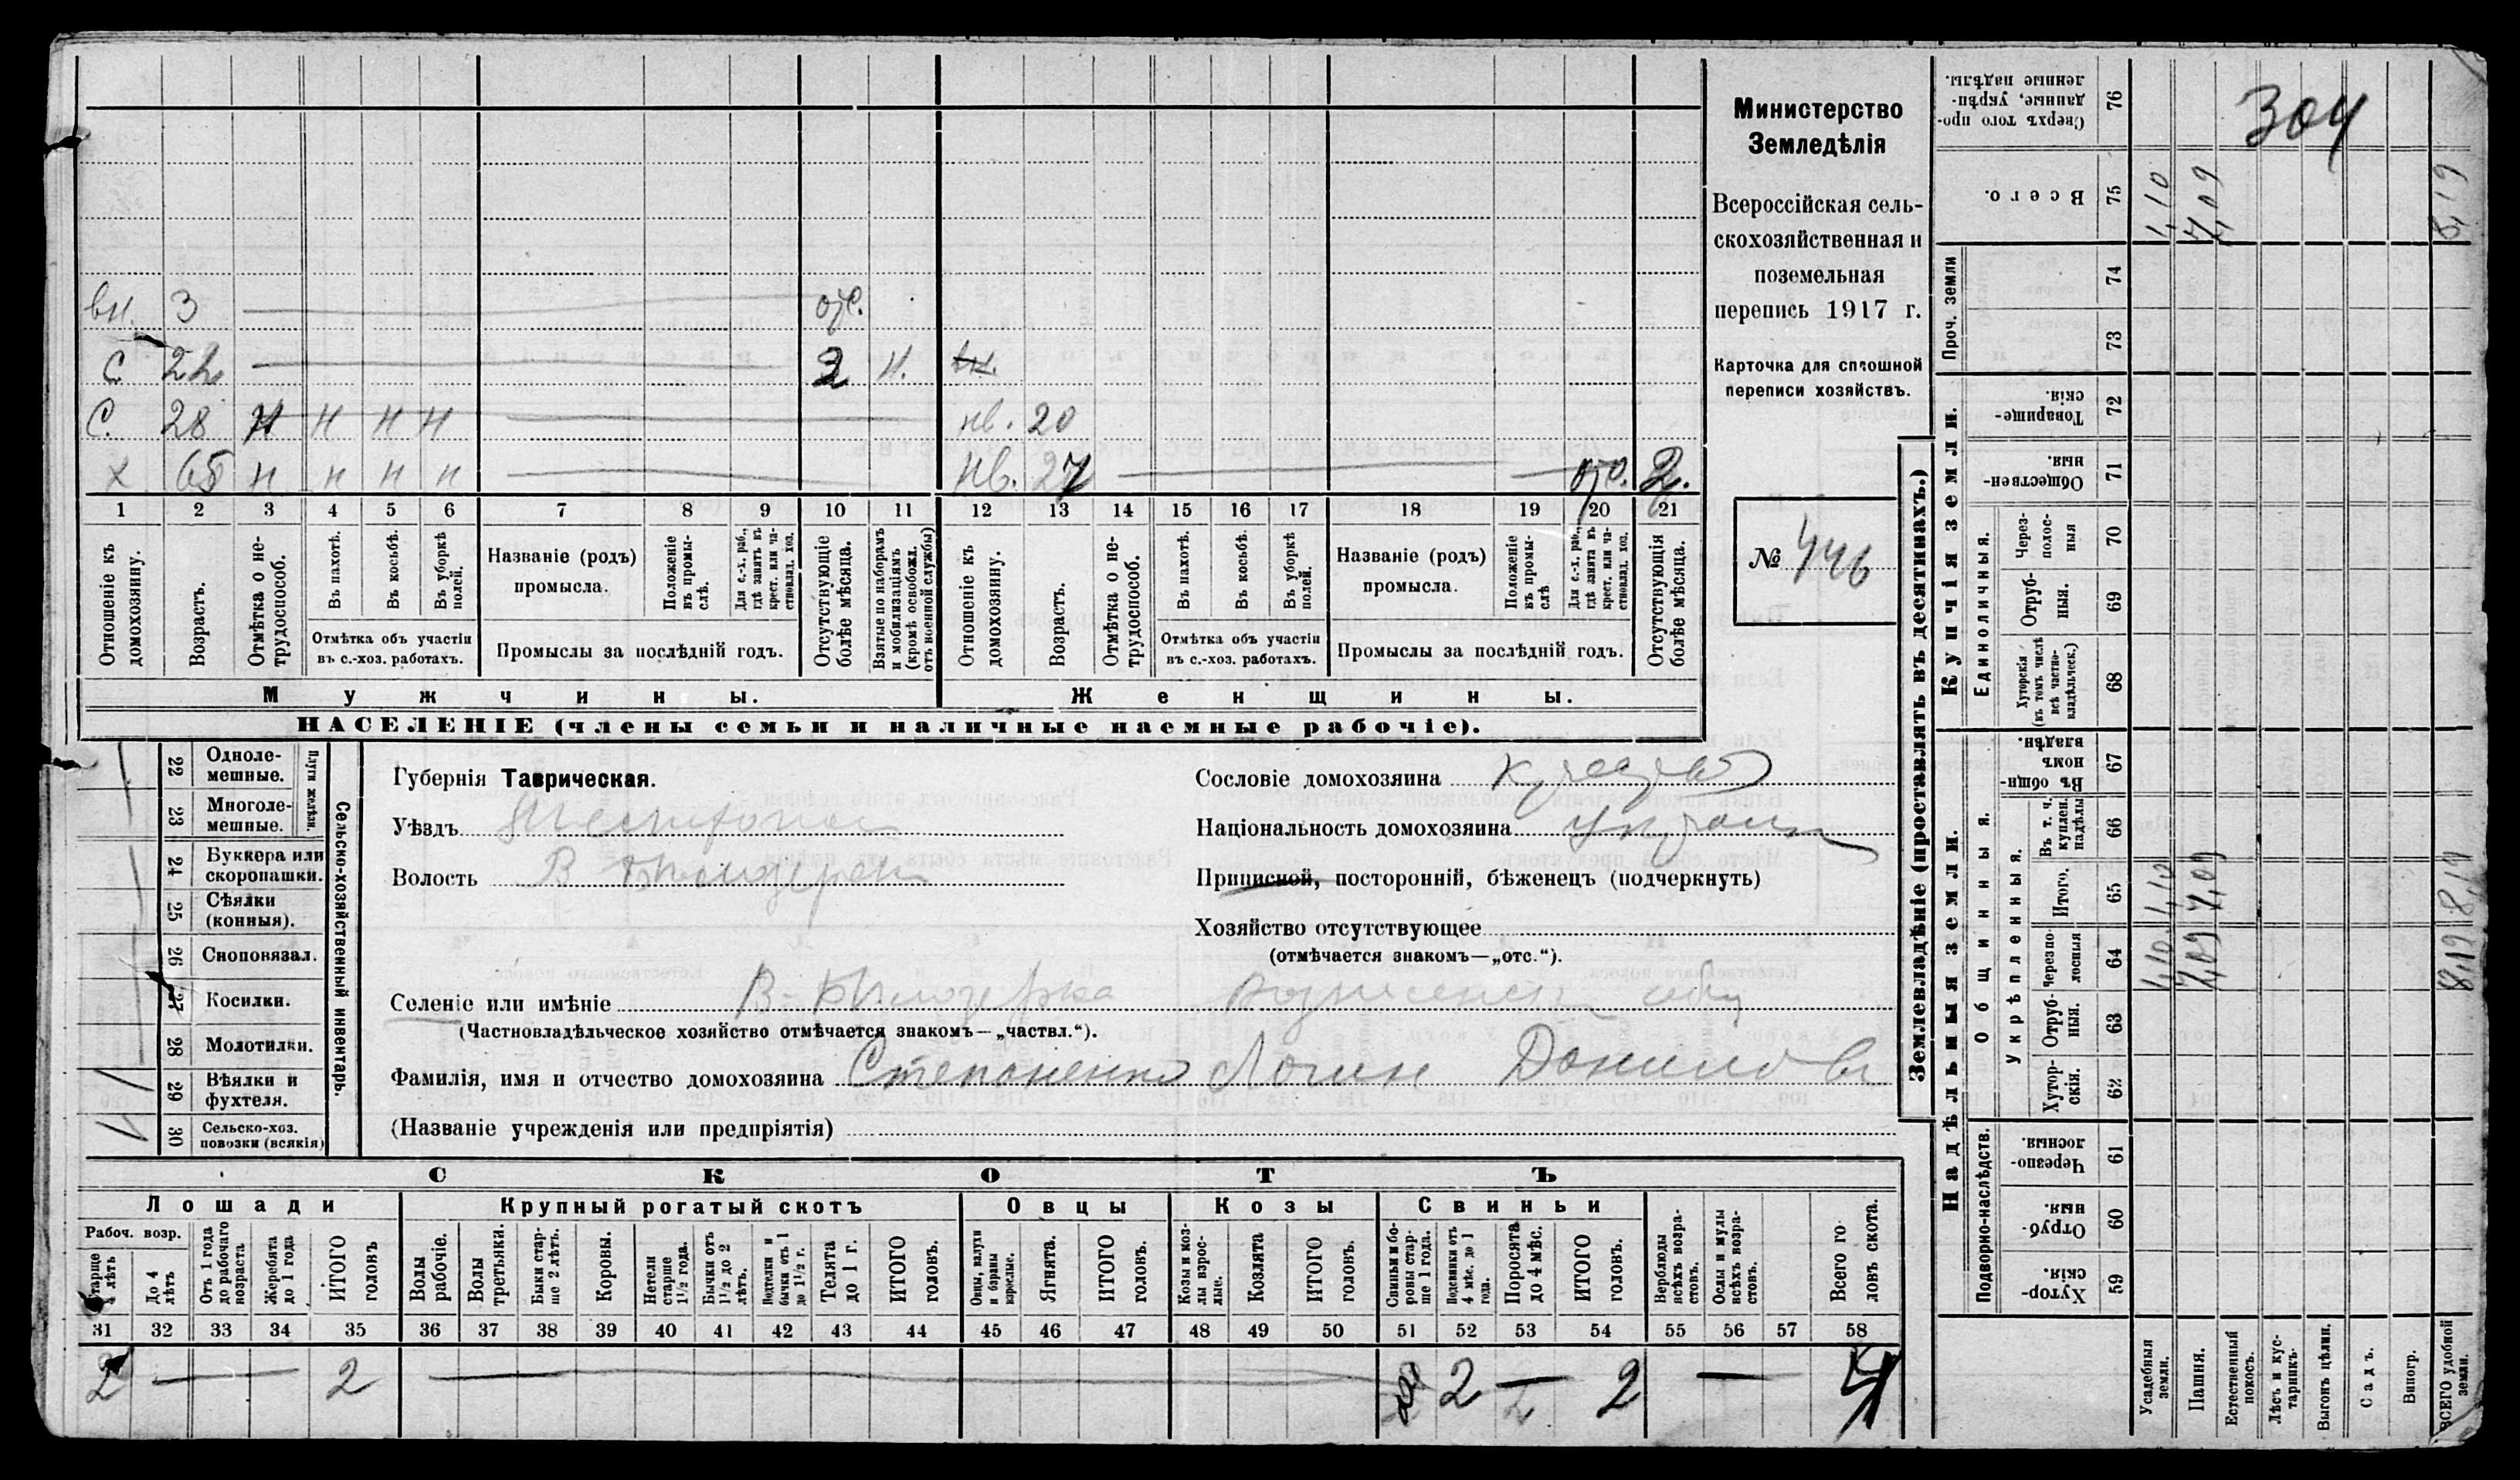 Министерство
Земледѣлія
Всероссійская сель-
скохозяйственная и
поземельная
перепись 1917 г.
Карточка для сплошной
переписи хозяйствъ.
№ 446
304
вн. 3 отс.
С 22 2 н.
С. 28 н н н н нв. 20
х 65 н н н н нв. 27 отс. 2.
1 2 3 4 5 6 7 8 9 10 11 12 13 14 15 16 17 18 19 20 21
Отношеніе къ домохозяину.
Возрастъ.
Отмѣтка о не-трудоспособ.
Въ пахотѣ.
Въ косьбѣ.
Въ уборкѣ полей.
Отмѣтка объ участіи
въ с.-хоз. работахъ.
Названіе (родъ)
промысла.
Положеніе въ промы-слѣ.
Для с.-х. раб., гдѣ занятъ въ крест. или ча-стновлад. хоз.
Промыслы за послѣдній годъ.
Отсутствующіе болѣе мѣсяца.
Взятые по наборамъ и мобилизаціямъ (кромѣ освобожд. отъ военной службы)
Отношеніе къ домохозяину.
Возрастъ.
Отмѣтка о не-трудоспособ.
Въ пахотѣ.
Въ косьбѣ.
Въ уборкѣ полей.
Отмѣтка объ участіи
въ с.-хоз. работахъ.
Названіе (родъ)
промысла.
Положеніе въ промы-слѣ
Для с.-х. раб., гдѣ занята въ крест. или ча-стновлад. хоз.
Промыслы за послѣдній годъ.
Отсутствующія болѣе мѣсяца.
Мужчины.
Женщины.
НАСЕЛЕНІЕ (члены семьи и наличные наемные рабочіе).
Сельско-хозяйственный инвентарь.
Плуги желѣзн.
22 Одноле-мешные.
23 Многоле-мешные.
24 Буккера или скоропашки.
25 Сѣялки (конныя).
26 Сноповязал.
27 Косилки.
28 Молотилки.
29 Вѣялки и фухтеля.
30 Сельско-хоз. повозки (всякія)
Губернія Таврическая.
Уѣздъ
Волость В
Сословіе домохозяина
Національность домохозяина
Приписной, посторонній, бѣженецъ (подчеркнуть)
Хозяйство отсутствующее
(отмѣчается знакомъ—„отс.“).
Селеніе или имѣніе В-
(Частновладѣльческое хозяйство отмѣчается знакомъ—„частвл.“).
Фамилія, имя и отчество домохозяина Степоненко Логин Донилов
(Названіе учрежденія или предпріятія)
СКОТЪ
Лошади
Крупный рогатый скотъ
Овцы
Козы
Свиньи
Рабоч. возр.
Старше 4 лѣтъ
До 4 лѣтъ
Отъ 1 года до рабочаго возраста
Жеребята до 1 года
ИТОГО головъ
Волы рабочіе.
Волы третьяки.
Быки стар-ше 2 лѣтъ.
Коровы.
Нетели старше 1½ года.
Бычки отъ 1½ до 2 лѣтъ.
Подтелки и бычки отъ 1 до 1½ г.
Телята до 1 г.
ИТОГО головъ.
Овцы, валухи и бараны взрослые.
Ягнята.
ИТОГО головъ.
Козы и коз-лы взрос-лые.
Козлята
ИТОГО головъ.
Свиньи и бо-ровы стар-ше 1 года.
Подсвинки отъ 4 мѣс. до 1 года.
Поросята до 4 мѣс.
ИТОГО головъ.
Верблюды всѣхъ возра-стовъ.
Ослы и мулы всѣхъ возра-стовъ.
Всего го-ловъ скота.
31 32 33 34 35 36 37 38 39 40 41 42 43 44 45 46 47 48 49 50 51 52 53 54 55 56 57 58
2 — — 2 — 2 — 2 — 4
Землевладѣніе (проставлять въ десятинахъ.)
Купчія земли.
Надѣльныя земли.
Сверхъ того про-данные, укрѣп-ленные надѣлы. 76
Всего. 75 1,10 7,09 8,19
Проч. земли
74
73
Товарище-скія. 72
Обществен-ныя. 71
Единоличныя.
Через-полос-ныя 70
Отруб-ныя. 69
Хуторскія (въ томъ числѣ всѣ частно-владѣльческ.) 68
Общинныя.
Въ общи-номъ владѣн. 67
Укрѣпленныя.
Въ т. ч. куплен. надѣлы 66
Итого. 65 1,10 7,09 8,19
Черезпо-лосныя 64 1,10 7,09 8,19
Отруб-ныя. 63
Хутор-скія. 62
Подворно-наслѣдств.
Черезпо-лосныя. 61
Отруб-ныя. 60
Хутор-скія. 59
Усадебныя земли.
Пашня.
Естественный покосъ.
Лѣсъ и кус-тарникъ.
Выгонъ цѣлин.
Садъ.
Виногр.
ВСЕГО удобной земли.